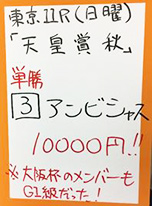 東京11R(日曜)
「天皇賞秋」
単勝
3 アンビシャス
10000円!!
※大阪杯のメンバーも
G1級だった!